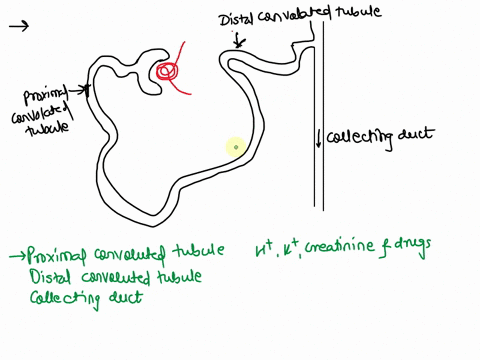 Distal convoluted tubule
Proximal
convoluted
tubule
collecting duct
→ Proximal convoluted tubule
H⁺, K⁺, creatinine & drugs
Distal convoluted tubule
Collecting duct